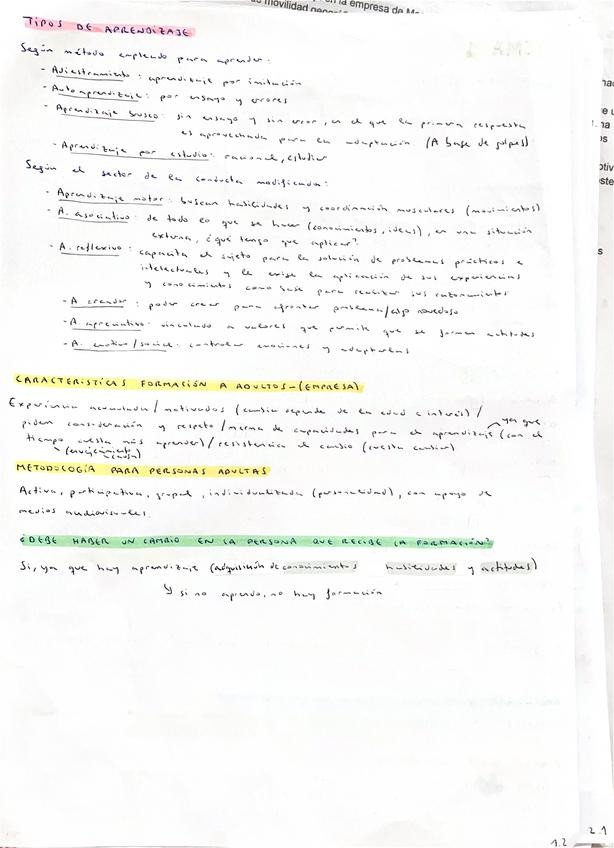 en la empresa de
TIPOS DE APRENDIZAJE
Según método empleado para aprender:
- Adiestramiento: aprendizaje por imitación
- Autoaprendizaje: por ensayo y errores
- Aprendizaje brusco: sin ensayo y sin error, en el que la primera respuesta
es aprovechada para la adaptación (A base de golpes)
- Aprendizaje por estudio: racional, estudiar
Según el sector de la conducta modificada:
- Aprendizaje motor: buscan habilidades y coordinación musculares (movimientos)
- A. asociativo: de todo lo que se hacer (conocimientos, ideas), en una situación
externa, ¿qué tengo que aplicar?
- A. reflexivo: capacita el sujeto para la solución de problemas prácticos e
intelectuales y le exige la aplicación de sus experiencias
y conocimientos como base para realizar sus razonamientos
- A creador: poder crear para afrontar problema/ novedoso
- A. apreciativo: vinculado a valores que permite que se formen actitudes
- A. emotivo/social: controlar emociones y adaptarlas
CARACTERISTICAS FORMACIÓN A ADULTOS-(EMPRESA)
Experiencia acumulada/ motivados (cambia depende de la edad e interés) /
piden consideración y respeto/merma de capacidades para el aprendizaje (con el
ya que
tiempo cuesta más aprender)/resistencia al cambio (cuesta cambiar)
(envejecimiento
METODOLOGÍA PARA PERSONAS ADULTAS
Activa, participativa, grupal, individualizada (personalidad), con apoyo de
medios audiovisuales.
¿DEBE HABER UN CAMBIO EN LA PERSONA QUE RECIBE LA FORMACIÓN?
Si, ya que hay aprendizaje (adquisición de conocimientos habilidades y actitudes)
y si no aprendo, no hay formación
1.2
2.1